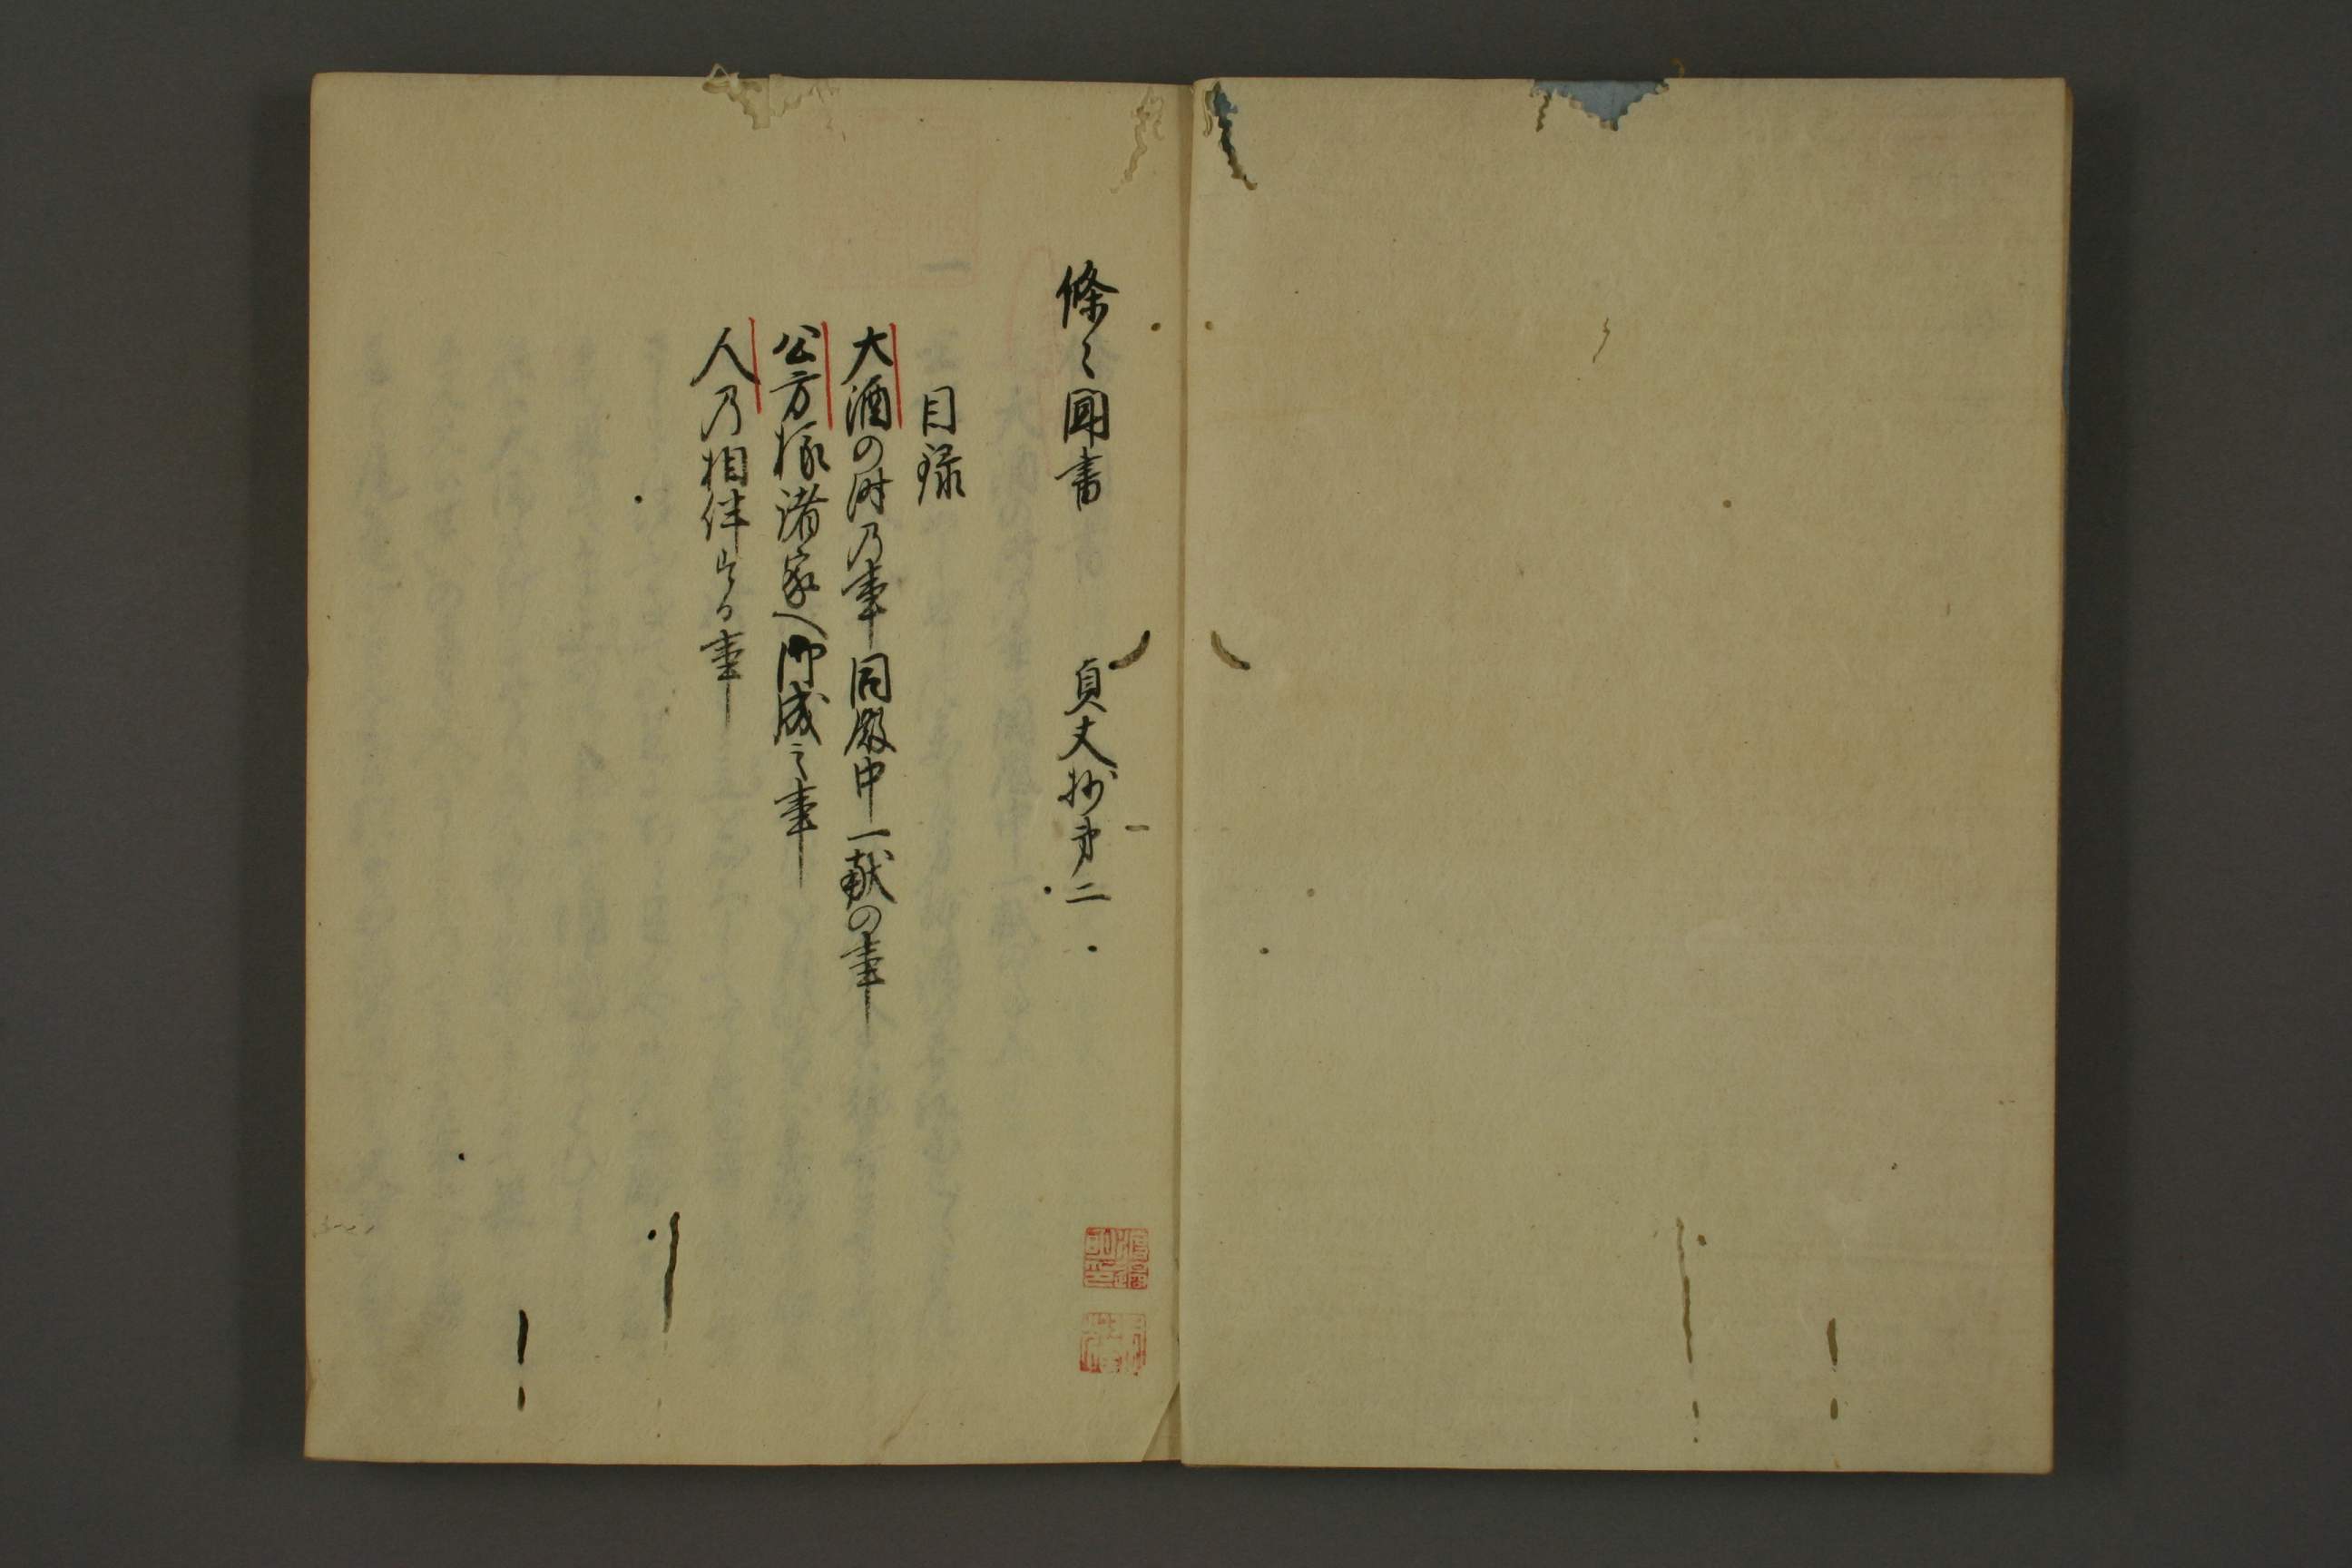 條々聞書 貞丈抄第二
目録
大酒の時乃事 同殿中一献の事
公方様諸家へ御成之事
人乃相伴する事